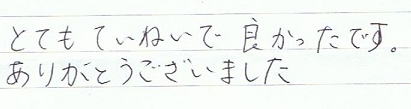 とてもていねいで良かったです。
ありがとうございました